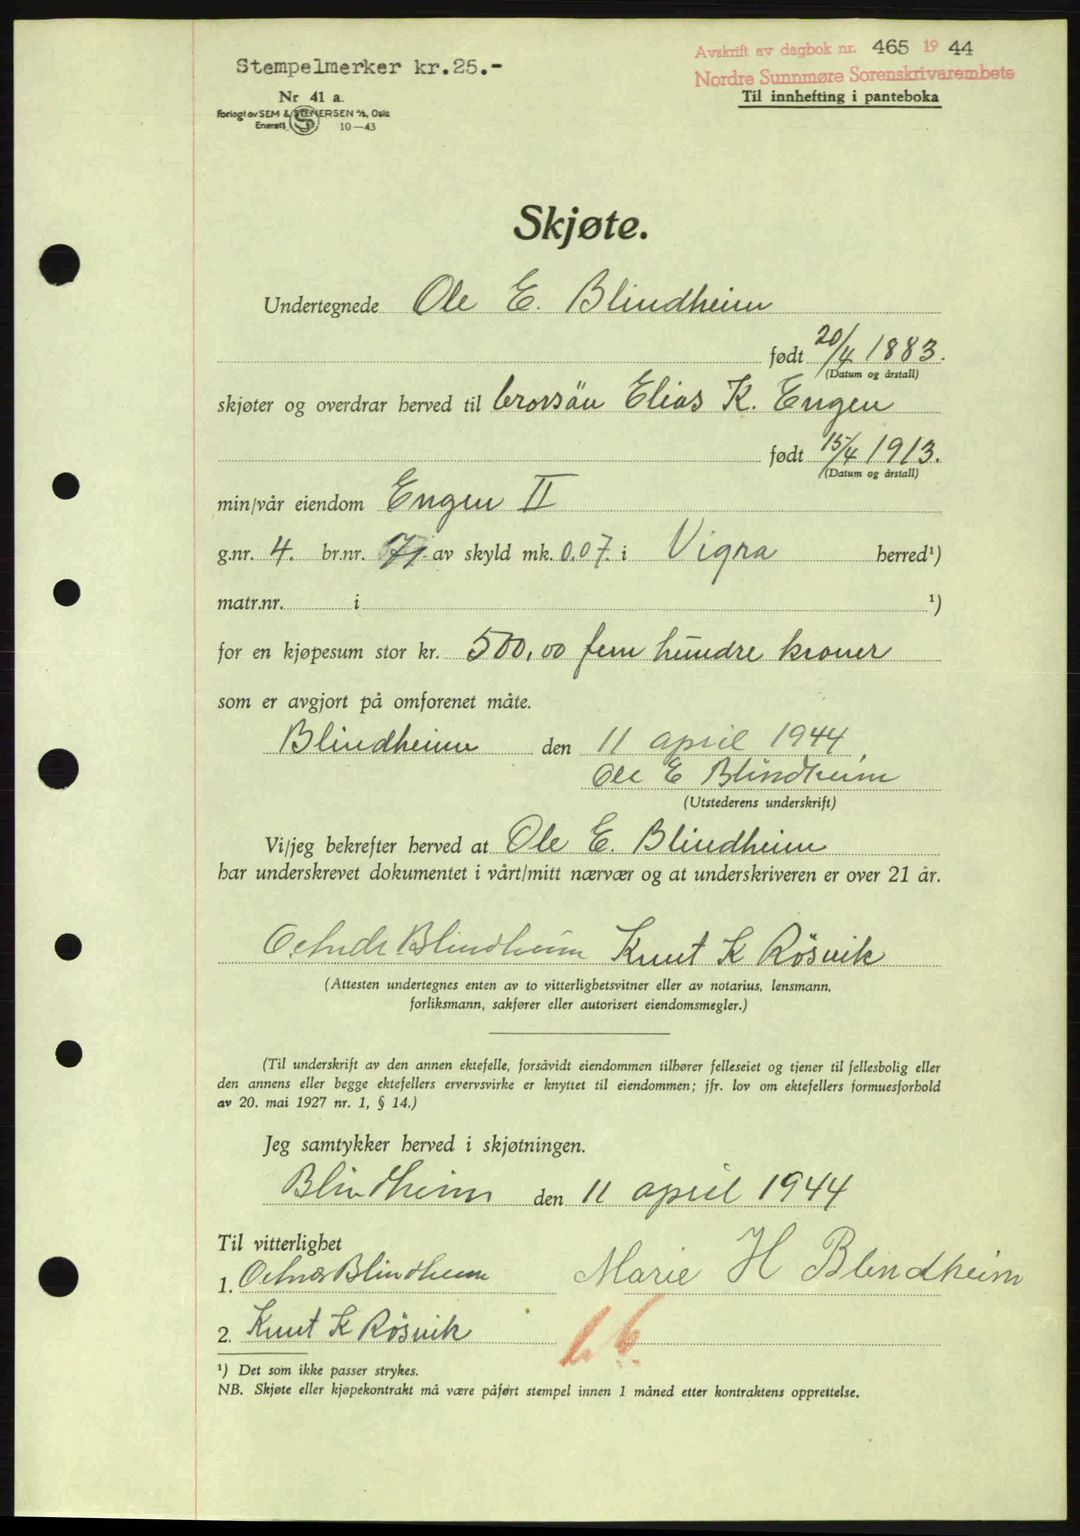 Avskrift av dagbok nr. 465 19 44
Stempelmerker kr.25.-
Nordre Sunnmøre Sorenskrivarembete
Nr 41 a.
Til innhefting i panteboka
Forlagt av SEM & STENERSEN A/S, Oslo
Enerett 10—43
Skjøte.
Undertegnede Ole E. Blindheim
født 20/4 1883.
(Datum og årstall)
skjøter og overdrar herved til brorsön Elias K. Engen
født 15/4 1913.
(Datum og årstall)
min/vår eiendom Engen II
g.nr. 4. br.nr. 71. av skyld mk. 0.07. i Vigra herred¹)
matr.nr. i ¹)
for en kjøpesum stor kr. 500,00 fem hundre kroner
som er avgjort på omforenet måte.
Blindheim den 11 april 1944
Ole E Blindheim
(Utstederens underskrift)
Vi/jeg bekrefter herved at Ole E. Blindheim
har underskrevet dokumentet i vårt/mitt nærvær og at underskriveren er over 21 år.
Blindheim Knut K Rösvik
(Attesten undertegnes enten av to vitterlighetsvitner eller av notarius, lensmann,
forliksmann, sakfører eller autorisert eiendomsmegler.)
(Til underskrift av den annen ektefelle, forsåvidt eiendommen tilhører felleseiet og tjener til fellesbolig eller
den annens eller begge ektefellers ervervsvirke er knyttet til eiendommen; jfr. lov om ektefellers formuesforhold
av 20. mai 1927 nr. 1, § 14.)
Jeg samtykker herved i skjøtningen.
Blindheim den 11 april 1944
Til vitterlighet
1. Blindheim Marie H Blindheim
2. Knut K Rösvik
¹) Det som ikke passer strykes.
NB. Skjøte eller kjøpekontrakt må være påført stempel innen 1 måned etter kontraktens opprettelse.